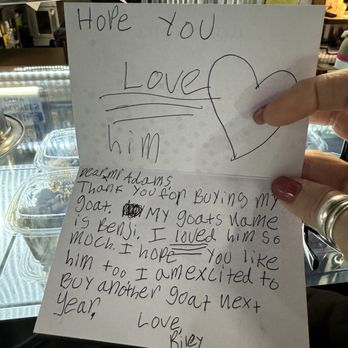 HOPE YOU
LOVE
him
Dear mr Adams
Thank you for Buying my
goat. My goats name
is Benji. I loved him so
much. I hope you like
him too I am excited to
Buy another goat next
year.
Love
Riley